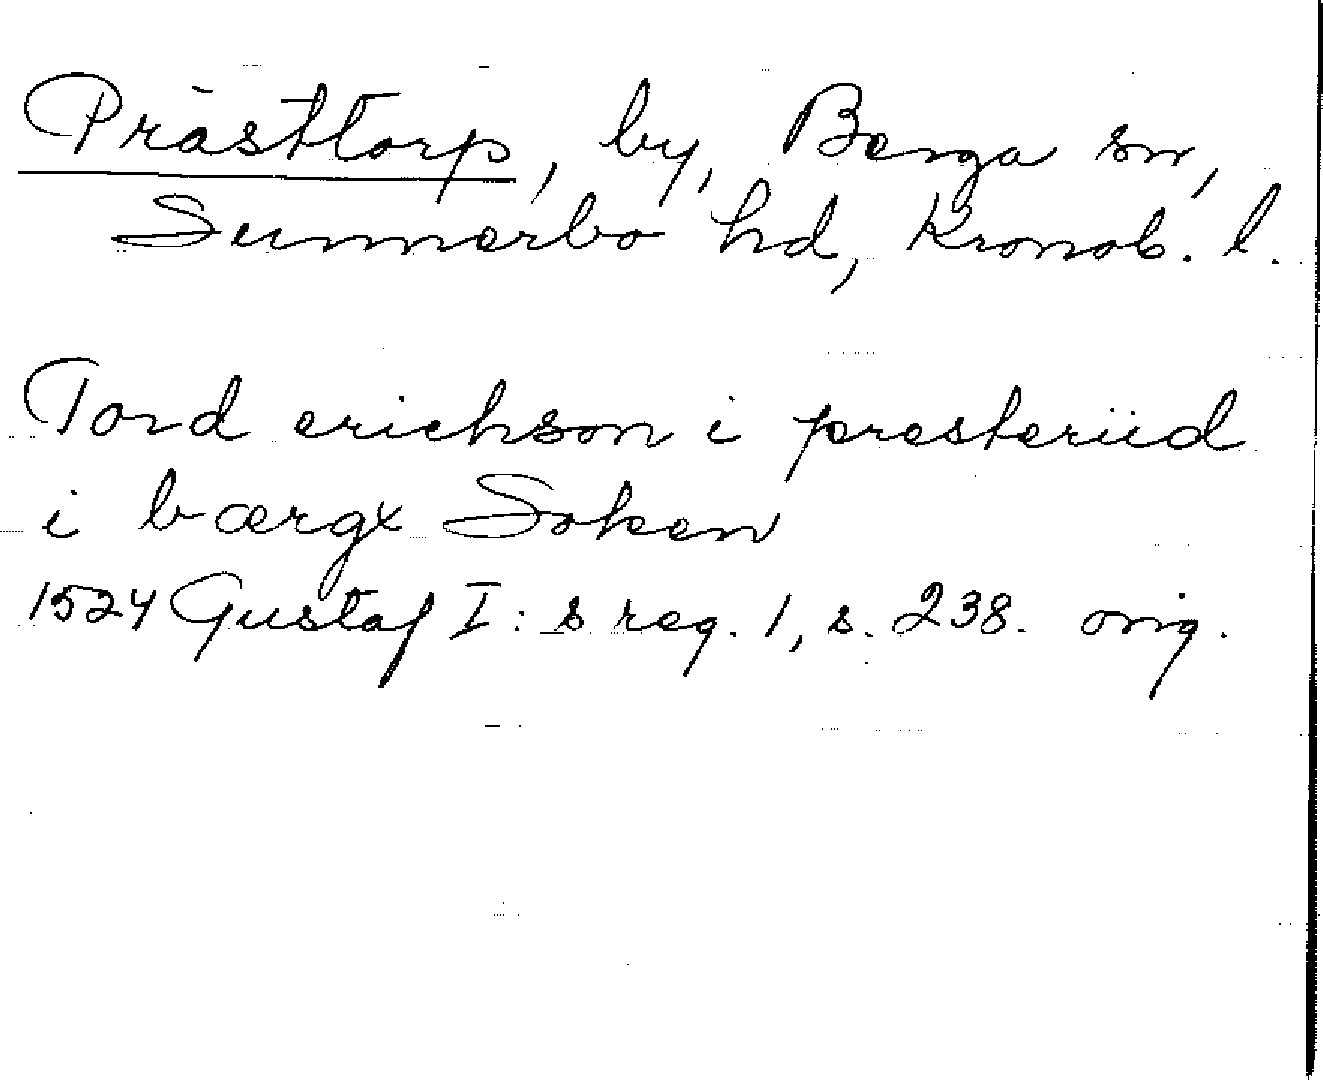 Prästtorp, by, Berga sn,
Sunnerbo hd, Kronob. l.
Tord erichson i presteriid
i bærgx Soken
1524 Gustaf I:s reg. 1, s. 238. orig.